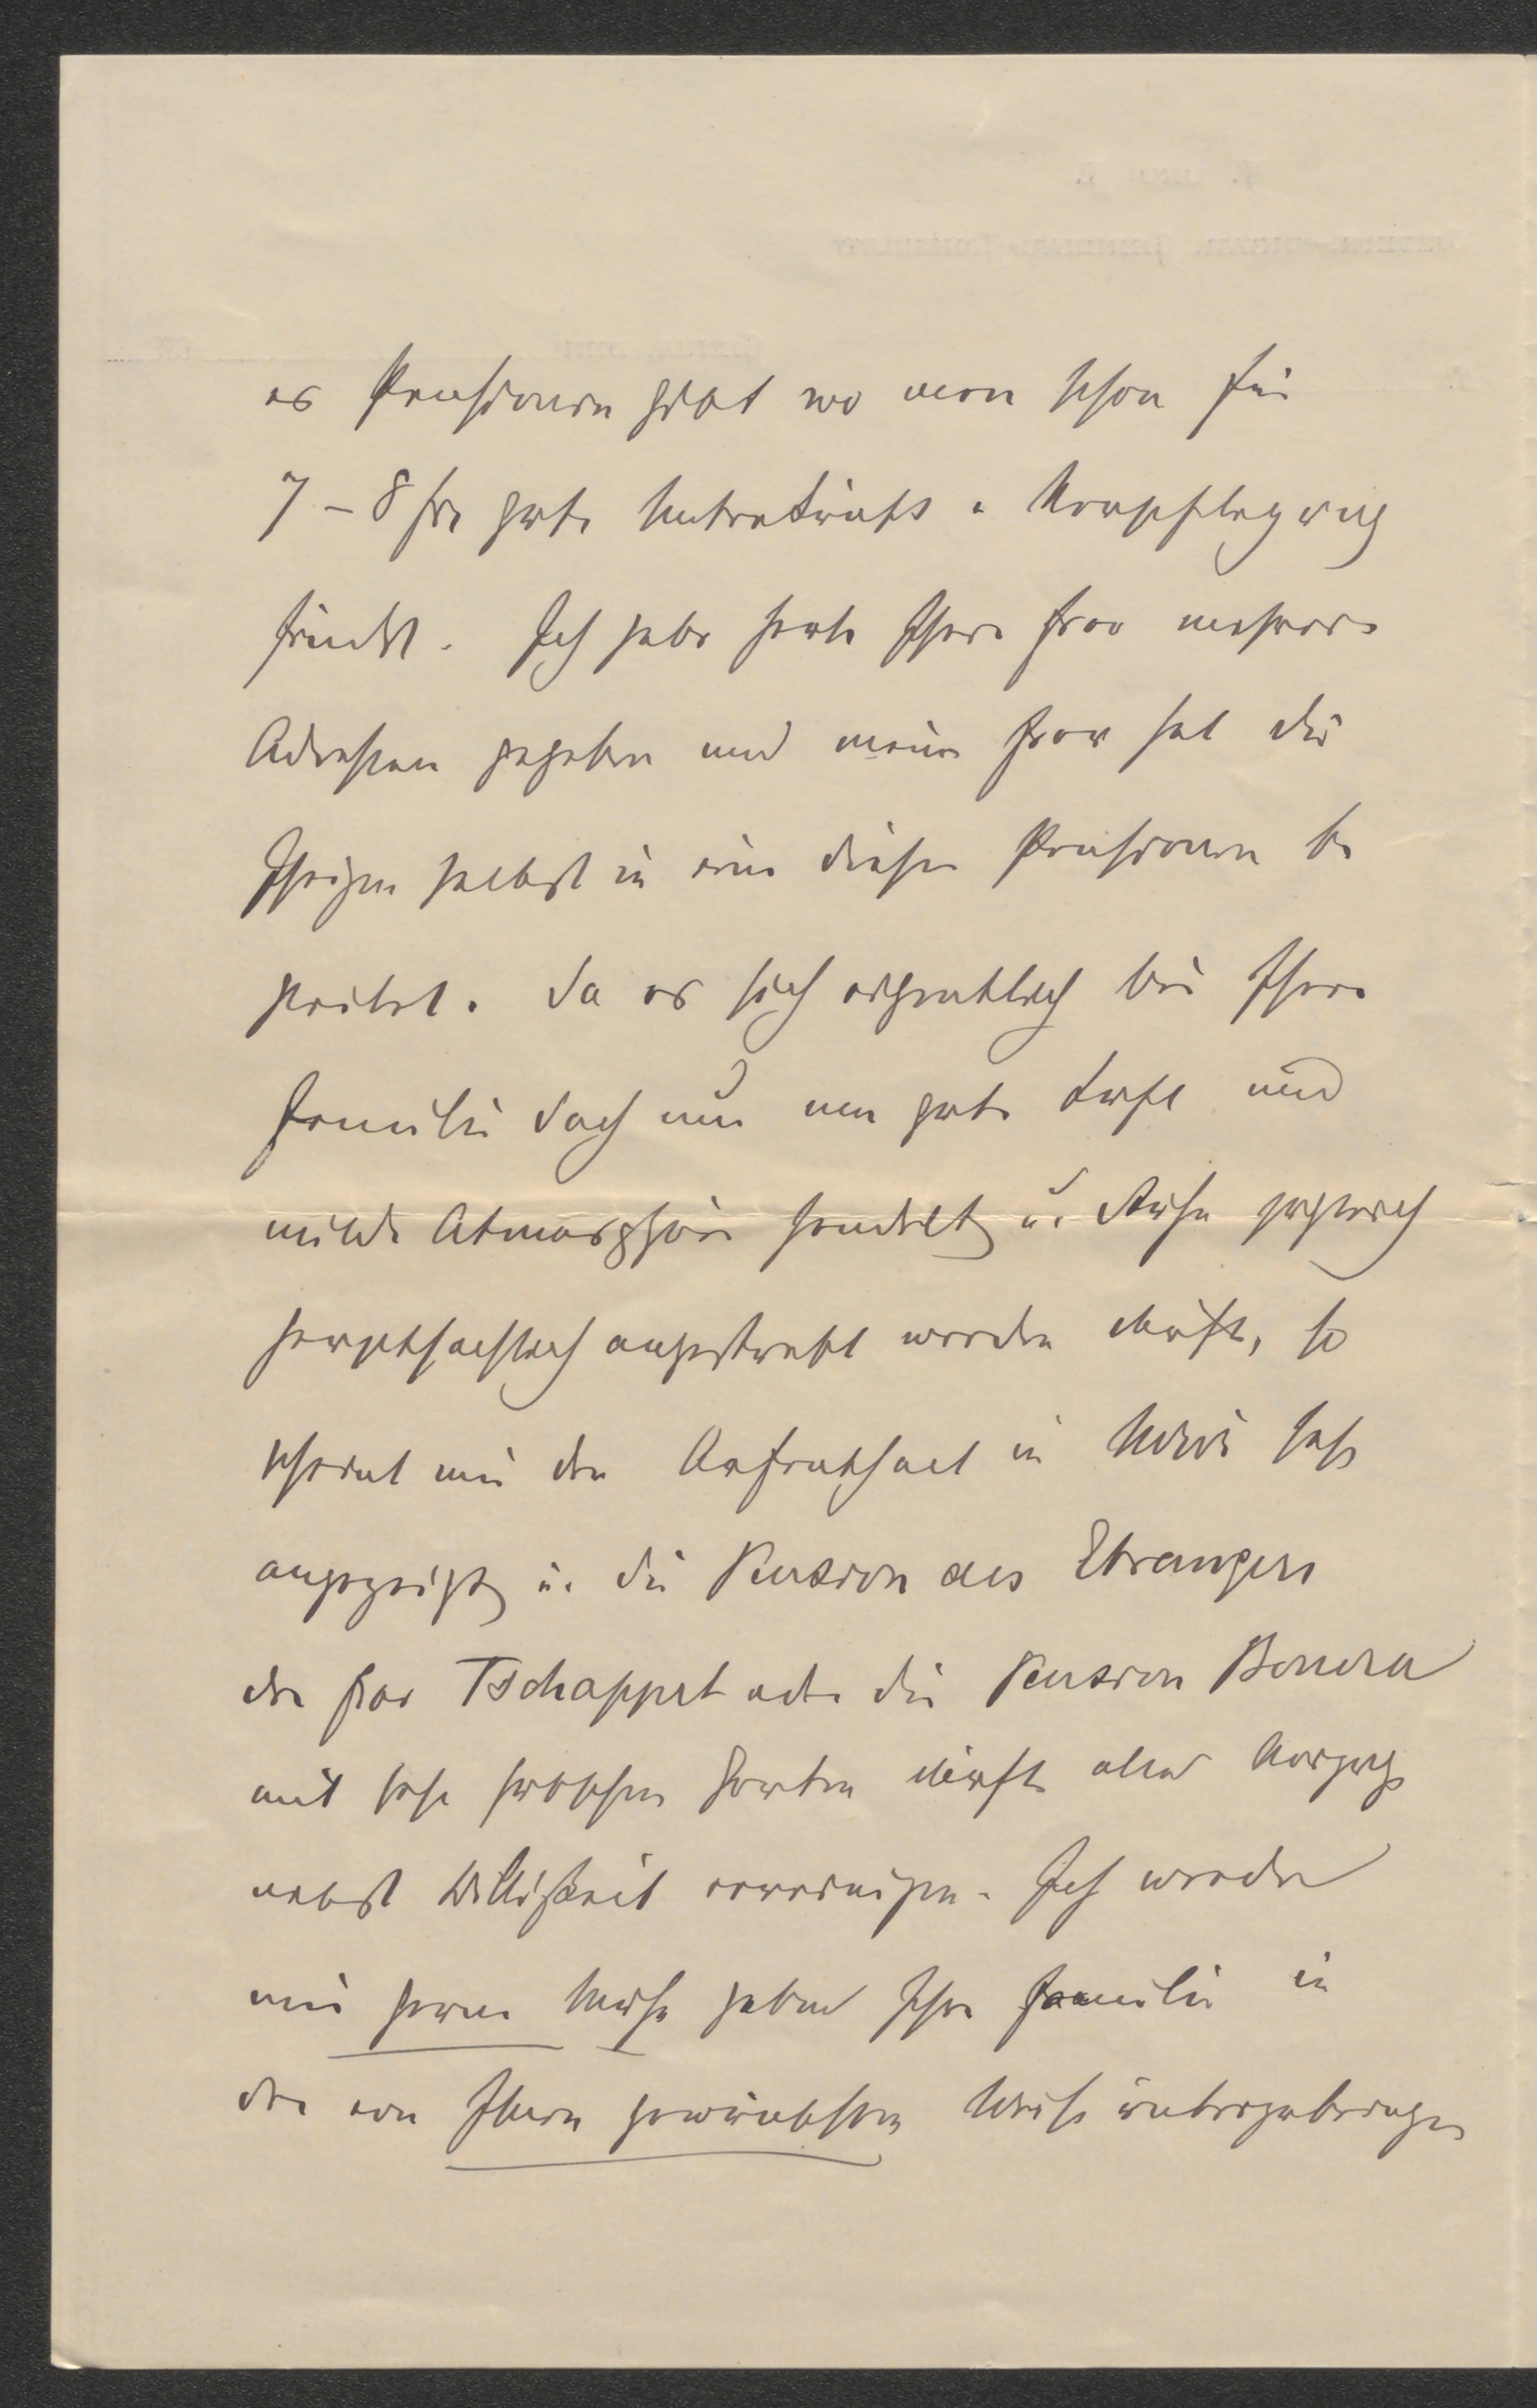 es Pensionen gibt wo man schon für
7 – 8 frs gute Unterkunft u. Verpflegung
findet. Ich habe heute Ihrer Frau mehrere
Adressen gegeben und meine Frau hat die
Ihrigen selbst in eine dieser Pensionen be
gleitet. Da es sich eigentlich bei Ihrer
Familie doch nur um gute Luft und
milde Atmosphäre handelt u. Ruhe
hauptsächlich angestrebt werden dürfte, so
scheint mir der Aufenthalt in Nervi sehr
angezeigt u. die Pension des Etrangers
der Frau Tschappet oder die Pension Bonera
mit sehr hübschem Garten dürfte allen Vorzug
nebst Billigkeit vereinigen. Ich werde
mir gerne Mühe geben Ihre Familie in
der von Ihnen gewünschten Weise unterzubringen